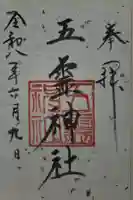 奉拝
五霊神社
令和八年六月九日